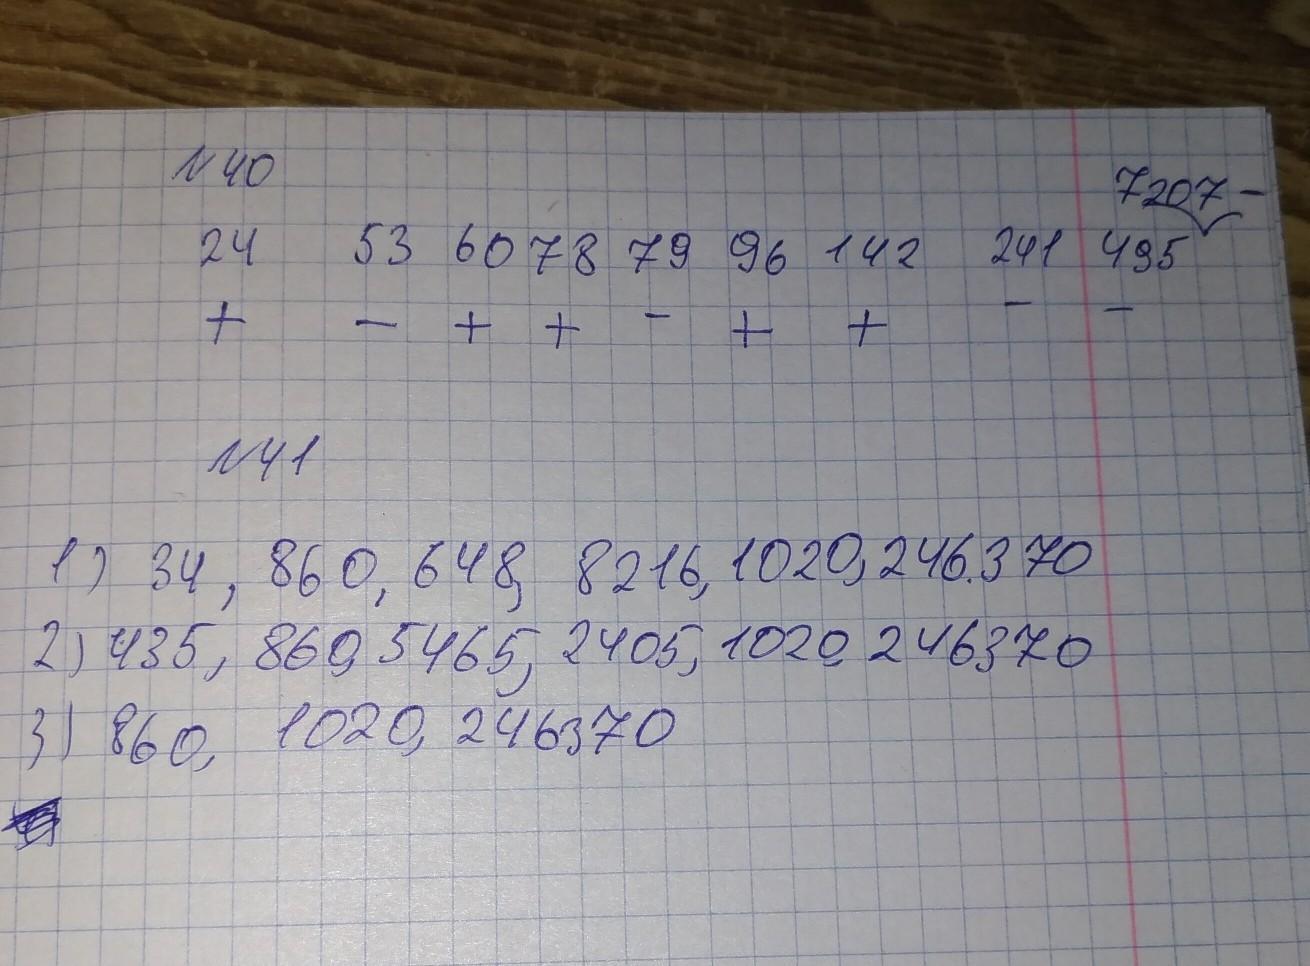 №40
7207 -
24 53 60 78 79 96 142 241 495
+ - + + - + + - -
№41
1) 34, 860, 648, 8216, 1020, 246.370
2) 435, 860, 5465, 2405, 1020 246370
3) 860, 1020, 246370